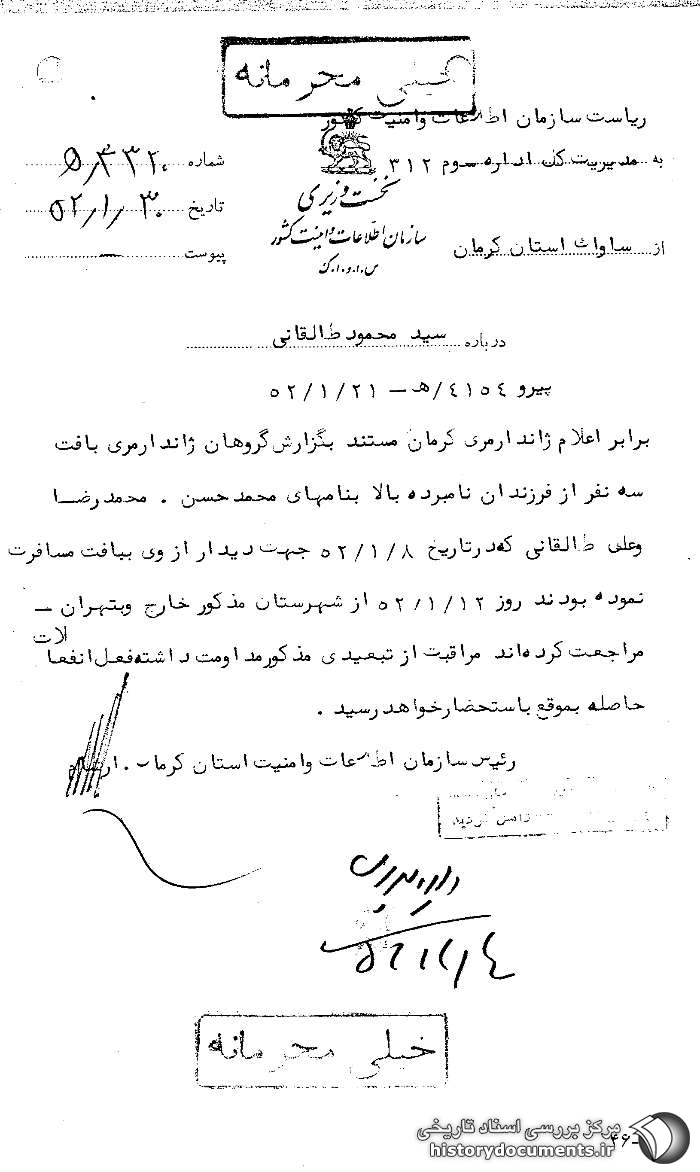 خیلی محرمانه
ریاست سازمان اطلاعات وامنیت کشور
به مدیریت کل اداره سوم ۳۱۲
از ساواک استان کرمان
نخست وزیری
سازمان اطلاعات و امنیت کشور
س.ا.و.ا.ک
شماره
تاریخ ۵۲/۱/۳۰
پیوست —
درباره سید محمود طالقانی
پیرو ٤١٥٤/هـ – ۵۲/۱/۲۱
برابر اعلام ژاندارمری کرمان مستند بگزارش گروهان ژاندارمری بافت
سه نفر از فرزندان نامبرده بالا بنامهای محمدحسن . محمدرضا
وعلی طالقانی که درتاریخ ۵۲/۱/۸ جهت دیدار از وی ببافت مسافرت
نموده بودند روز ۵۲/۱/۱۲ از شهرستان مذکور خارج وبتهران –
مراجعت کرده‌اند مراقبت از تبعیدی مذکور مداومت داشته فعل انفعا
لات
حاصله بموقع باستحضار خواهد رسید .
رئیس سازمان اطلاعات وامنیت استان کرمان .
گردید
خیلی محرمانه
۴۶-
مرکز بررسی اسناد تاریخی
historydocuments.ir